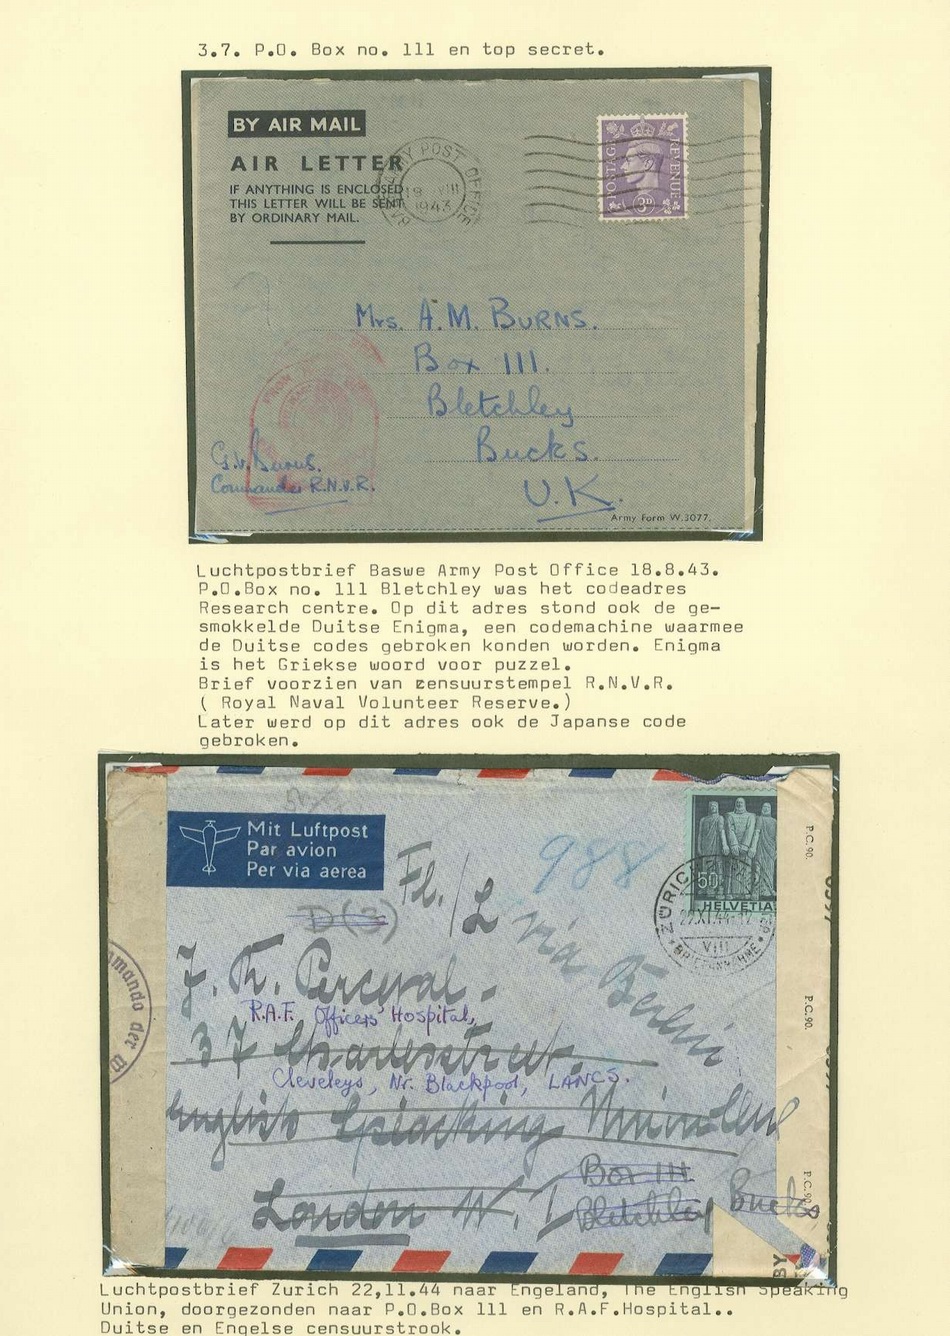 3.7. P.O. Box no. 111 en top secret.
BY AIR MAIL
AIR LETTER
IF ANYTHING IS ENCLOSED
THIS LETTER WILL BE SENT
BY ORDINARY MAIL.
ARMY POST OFFICE
18 VIII
1943
POSTAGE REVENUE
3D
Mrs. A.M. BURNS.
Box 111.
Bletchley
Bucks.
U.K.
Burns.
Commander R.N.V.R.
Army Form W.3077.
Luchtpostbrief Baswe Army Post Office 18.8.43.
P.O.Box no. 111 Bletchley was het codeadres
Research centre. Op dit adres stond ook de ge-
smokkelde Duitse Enigma, een codemachine waarmee
de Duitse codes gebroken konden worden. Enigma
is het Griekse woord voor puzzel.
Brief voorzien van censuurstempel R.N.V.R.
( Royal Naval Volunteer Reserve.)
Later werd op dit adres ook de Japanse code
gebroken.
Mit Luftpost
Par avion
Per via aerea
988
Fl./L
via Berlin
D(3)
50
HELVETIA
ZÜRICH
22.XI.44
VIII
BRIEFANNAHME
P.C. 90.
P.C. 90.
P.C. 90.
J. Th. Percyval.
R.A.F. Officers' Hospital,
37 Charlesstreet.
Cleveleys, Nr. Blackpool, LANCS.
English Speaking Union
Box 111.
London W. 1
Bletchley Bucks
BY
Luchtpostbrief Zurich 22,11.44 naar Engeland, The English Speaking
Union, doorgezonden naar P.O.Box 111 en R.A.F.Hospital..
Duitse en Engelse censuurstrook.